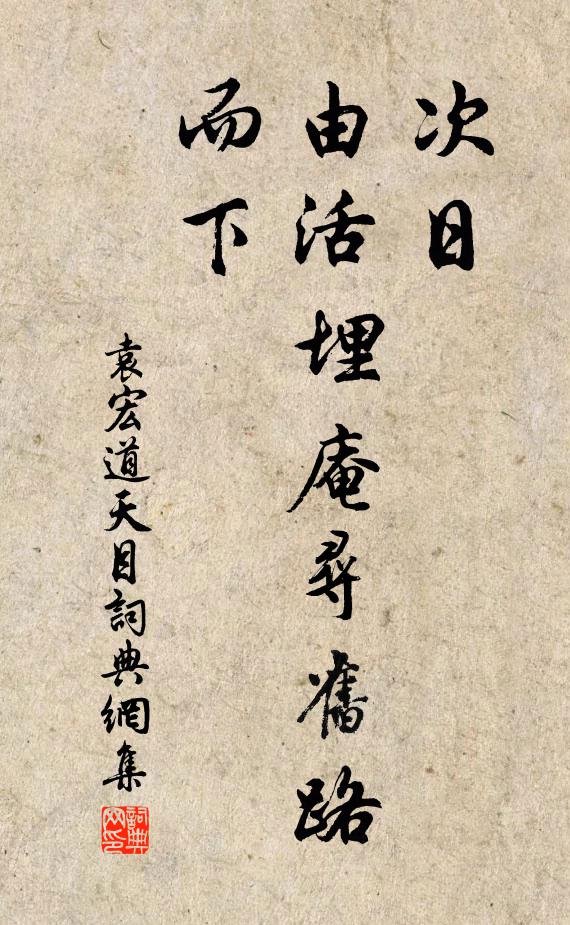 次日
由活埋庵尋舊路
而下
袁宏道天目詞典網集
詞典网印